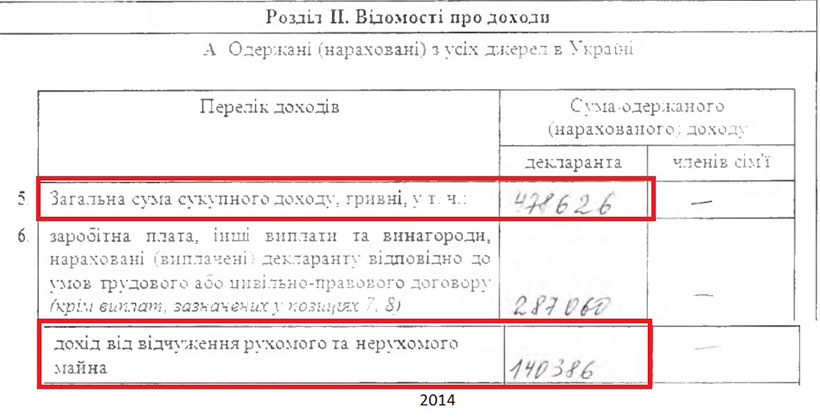 Розділ II. Відомості про доходи
А. Одержані (нараховані) з усіх джерел в Україні
Перелік доходів
Сума одержаного
(нарахованого) доходу
декларанта
членів сім'ї
5. Загальна сума сукупного доходу, гривні, у т. ч.: 478626 —
6. заробітна плата, інші виплати та винагороди,
нараховані (виплачені) декларанту відповідно до
умов трудового або цивільно-правового договору
(крім виплат, зазначених у позиціях 7, 8) 287060 —
дохід від відчуження рухомого та нерухомого
майна 140386 —
2014